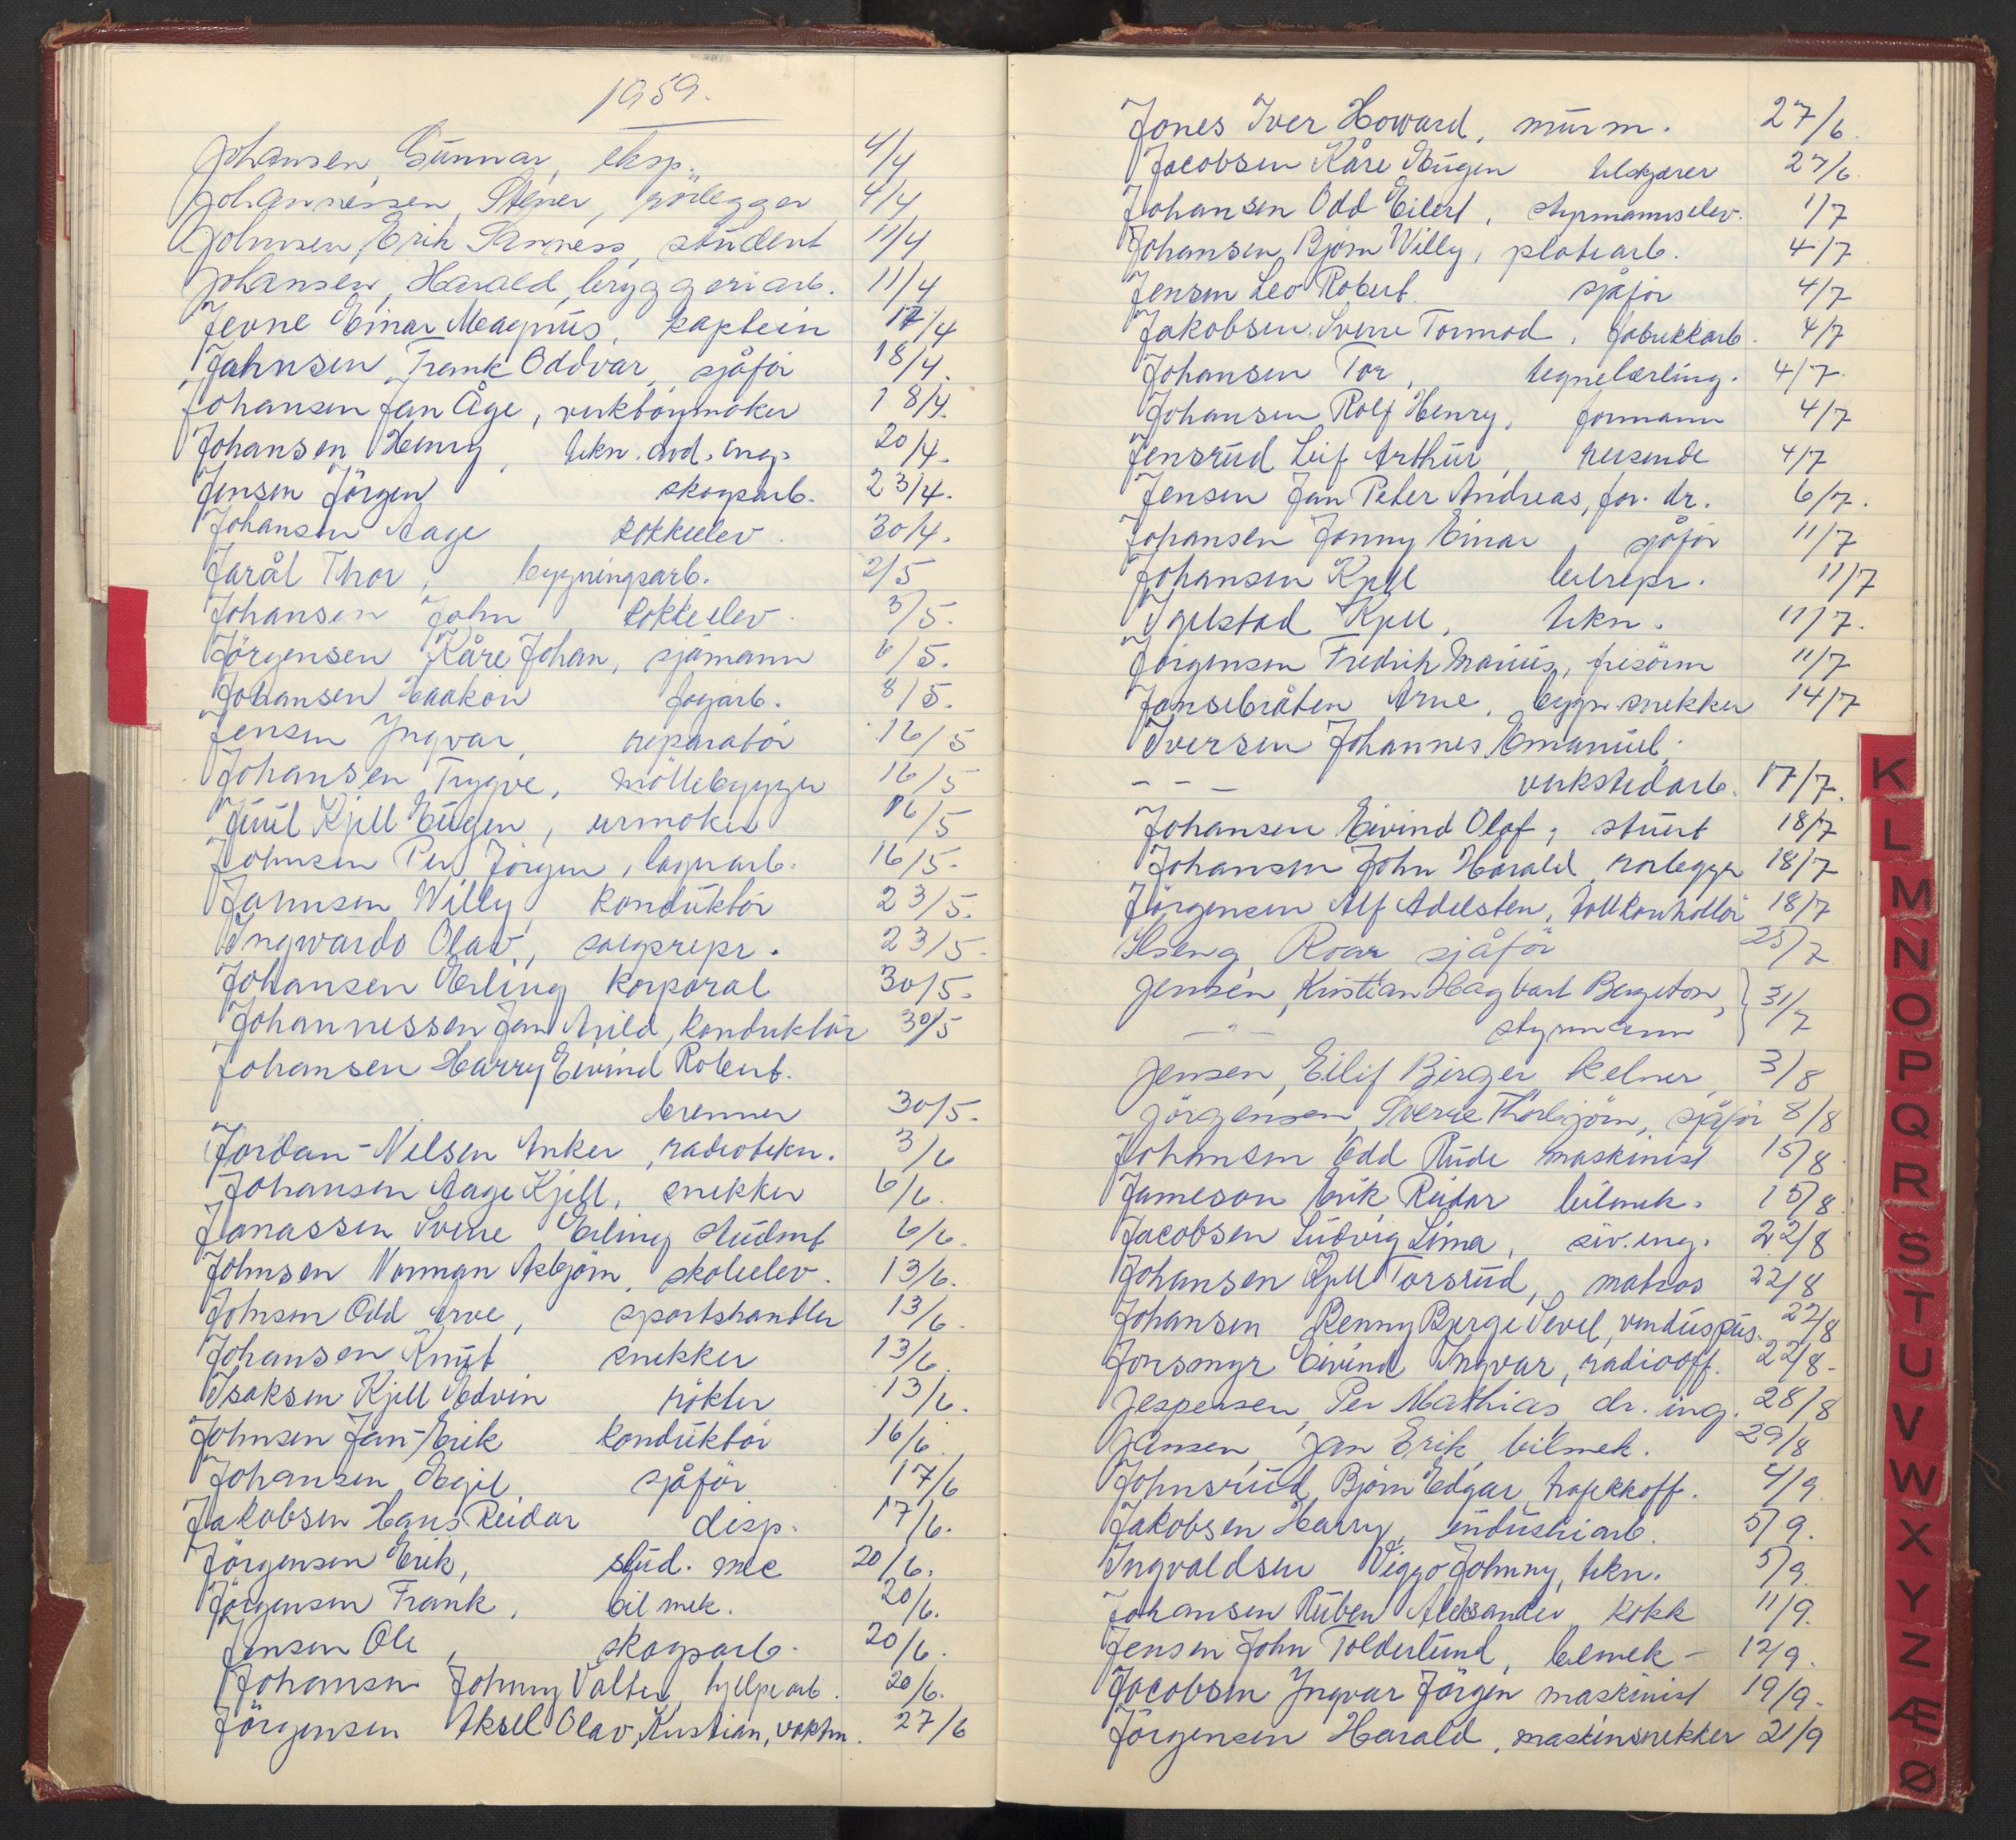 1959.
Johansen, Gunnar, eksp. 4/4
Johannessen, Stener, rörlegger 4/4
Johnsen, Erik Sanness, student 11/4
Johansen, Harald, bryggeriarb. 11/4
Jevne Einar Magnus, kaptein 17/4
Jahnsen, Frank Oddvar, sjåför 18/4.
Johansen Jan Åge, verktöymaker 18/4.
Johansen Henry, tekn. avd. ing. 20/4.
Jensen Jörgen skogsarb. 23/4.
Johansen Aage kokkelev. 30/4.
Jarål Thor, bygningsarb. 2/5
Johansen John kokkelev. 3/5.
Jörgensen Kåre Johan, sjömann 6/5.
Johansen Haakon fagarb. 8/5.
Jensen Yngvar, reparatör 16/5
Johansen Trygve, möllebygger 16/5
Juul Kjell Eugen, urmaker 16/5
Johnsen Per Jörgen, lagerarb. 16/5.
Jahnsen Willy konduktör 23/5.
Ingwardo Olav, salgsrepr. 23/5.
Johansen Erling korporal 30/5.
Johannessen Jan Arild, konduktör 30/5
Johansen Harry Eivind Robert.
brenner 30/5.
Jordan-Nilsen Anker, radiotekn. 3/6
Johansen Aage Kjell, snekker 6/6.
Jonassen Sverre Erling student 6/6.
Johnsen Norman Asbjörn, skoleelev. 13/6.
Johnsen Odd Arve, sportshandler 13/6.
Johansen Knut snekker 13/6.
Isaksen Kjell Edvin rökter 13/6.
Johnsen Jan-Erik konduktör 16/6.
Johansen Egil, sjåför 17/6
Jakobsen Hans Reidar disp. 17/6.
Jörgensen Erik, stud. mec 20/6.
Jörgensen Frank, bilmek. 20/6.
Jensen Ole, skogsarb. 20/6.
Johansen Johnny Valter, hjelpearb. 20/6.
Jörgensen Aksel Olav, Kristian, vaktm. 27/6
Jones Iver Howard, murm. 27/6.
Jacobsen Kåre Eugen tilskjærer 27/6.
Johansen Odd Eilert, styrmannselev. 1/7
Johansen Bjørn Willy, platearb. 4/7
Jensen Leo Robert sjåför 4/7
Jakobsen Sverre Tormod, fabrikkarb. 4/7
Johansen Tor, tegnelærling. 4/7.
Johansen Rolf Henry, formann 4/7
Jensrud Leif Arthur, reisende 4/7
Jensen Jan Peter Andreas, for. dr. 6/7.
Johansen Jonny Einar, sjåför 11/7
Johansen Kjell bilrepr. 11/7
Igelstad Kjell, tekn. 11/7.
Jörgensen Fredrik Marius, frisörm 11/7
Jonsebråten Arne, bygn. snekker 14/7
Iversen Johannes Emanuel.
- - - verkstedarb. 17/7.
Johansen Eivind Olaf, stuert 18/7
Johansen John Harald, rorlegger 18/7
Jörgensen Alf Adelsten, tollkontrollör 18/7
Ilseng, Roar sjåför 25/7
Jensen, Kristian Hagbart Bergeton, } 31/7
- " - styrmann
Jensen, Eilif Birger kelner, 3/8
Jörgensen, Sverre Thorbjörn, sjåför 8/8
Johansen Odd Rude maskinist 15/8.
Jameson Erik Reidar bilmek. 15/8.
Jacobsen Ludvig Lima, siv. ing. 22/8
Johansen Kjell Torsrud, matros 22/8
Johansen Benny Børge Sevel, vinduspus. 22/8
Jonsmyr Eivind Ingvar, radiooff. 22/8-
Jespersen, Per Mathias, dr. ing. 28/8
Jansen, Jan Erik, bilmek. 29/8
Johnsrud Bjørn Edgar, trafikkoff. 4/9.
Jakobsen Harry, industriarb. 5/9.
Ingvaldsen Viggo Johnny, tekn. 5/9.
Johansen Ruben Aleksander kokk 11/9.
Jensen John Tolderlund, bilmek - 12/9.
Jacobsen Yngvar Jörgen maskinist 19/9.
Jörgensen Harald, maskinsnekker 21/9
K
L
M
N
O
P
Q
R
S
T
U
V
W
X
Y
Z
Æ
Ø